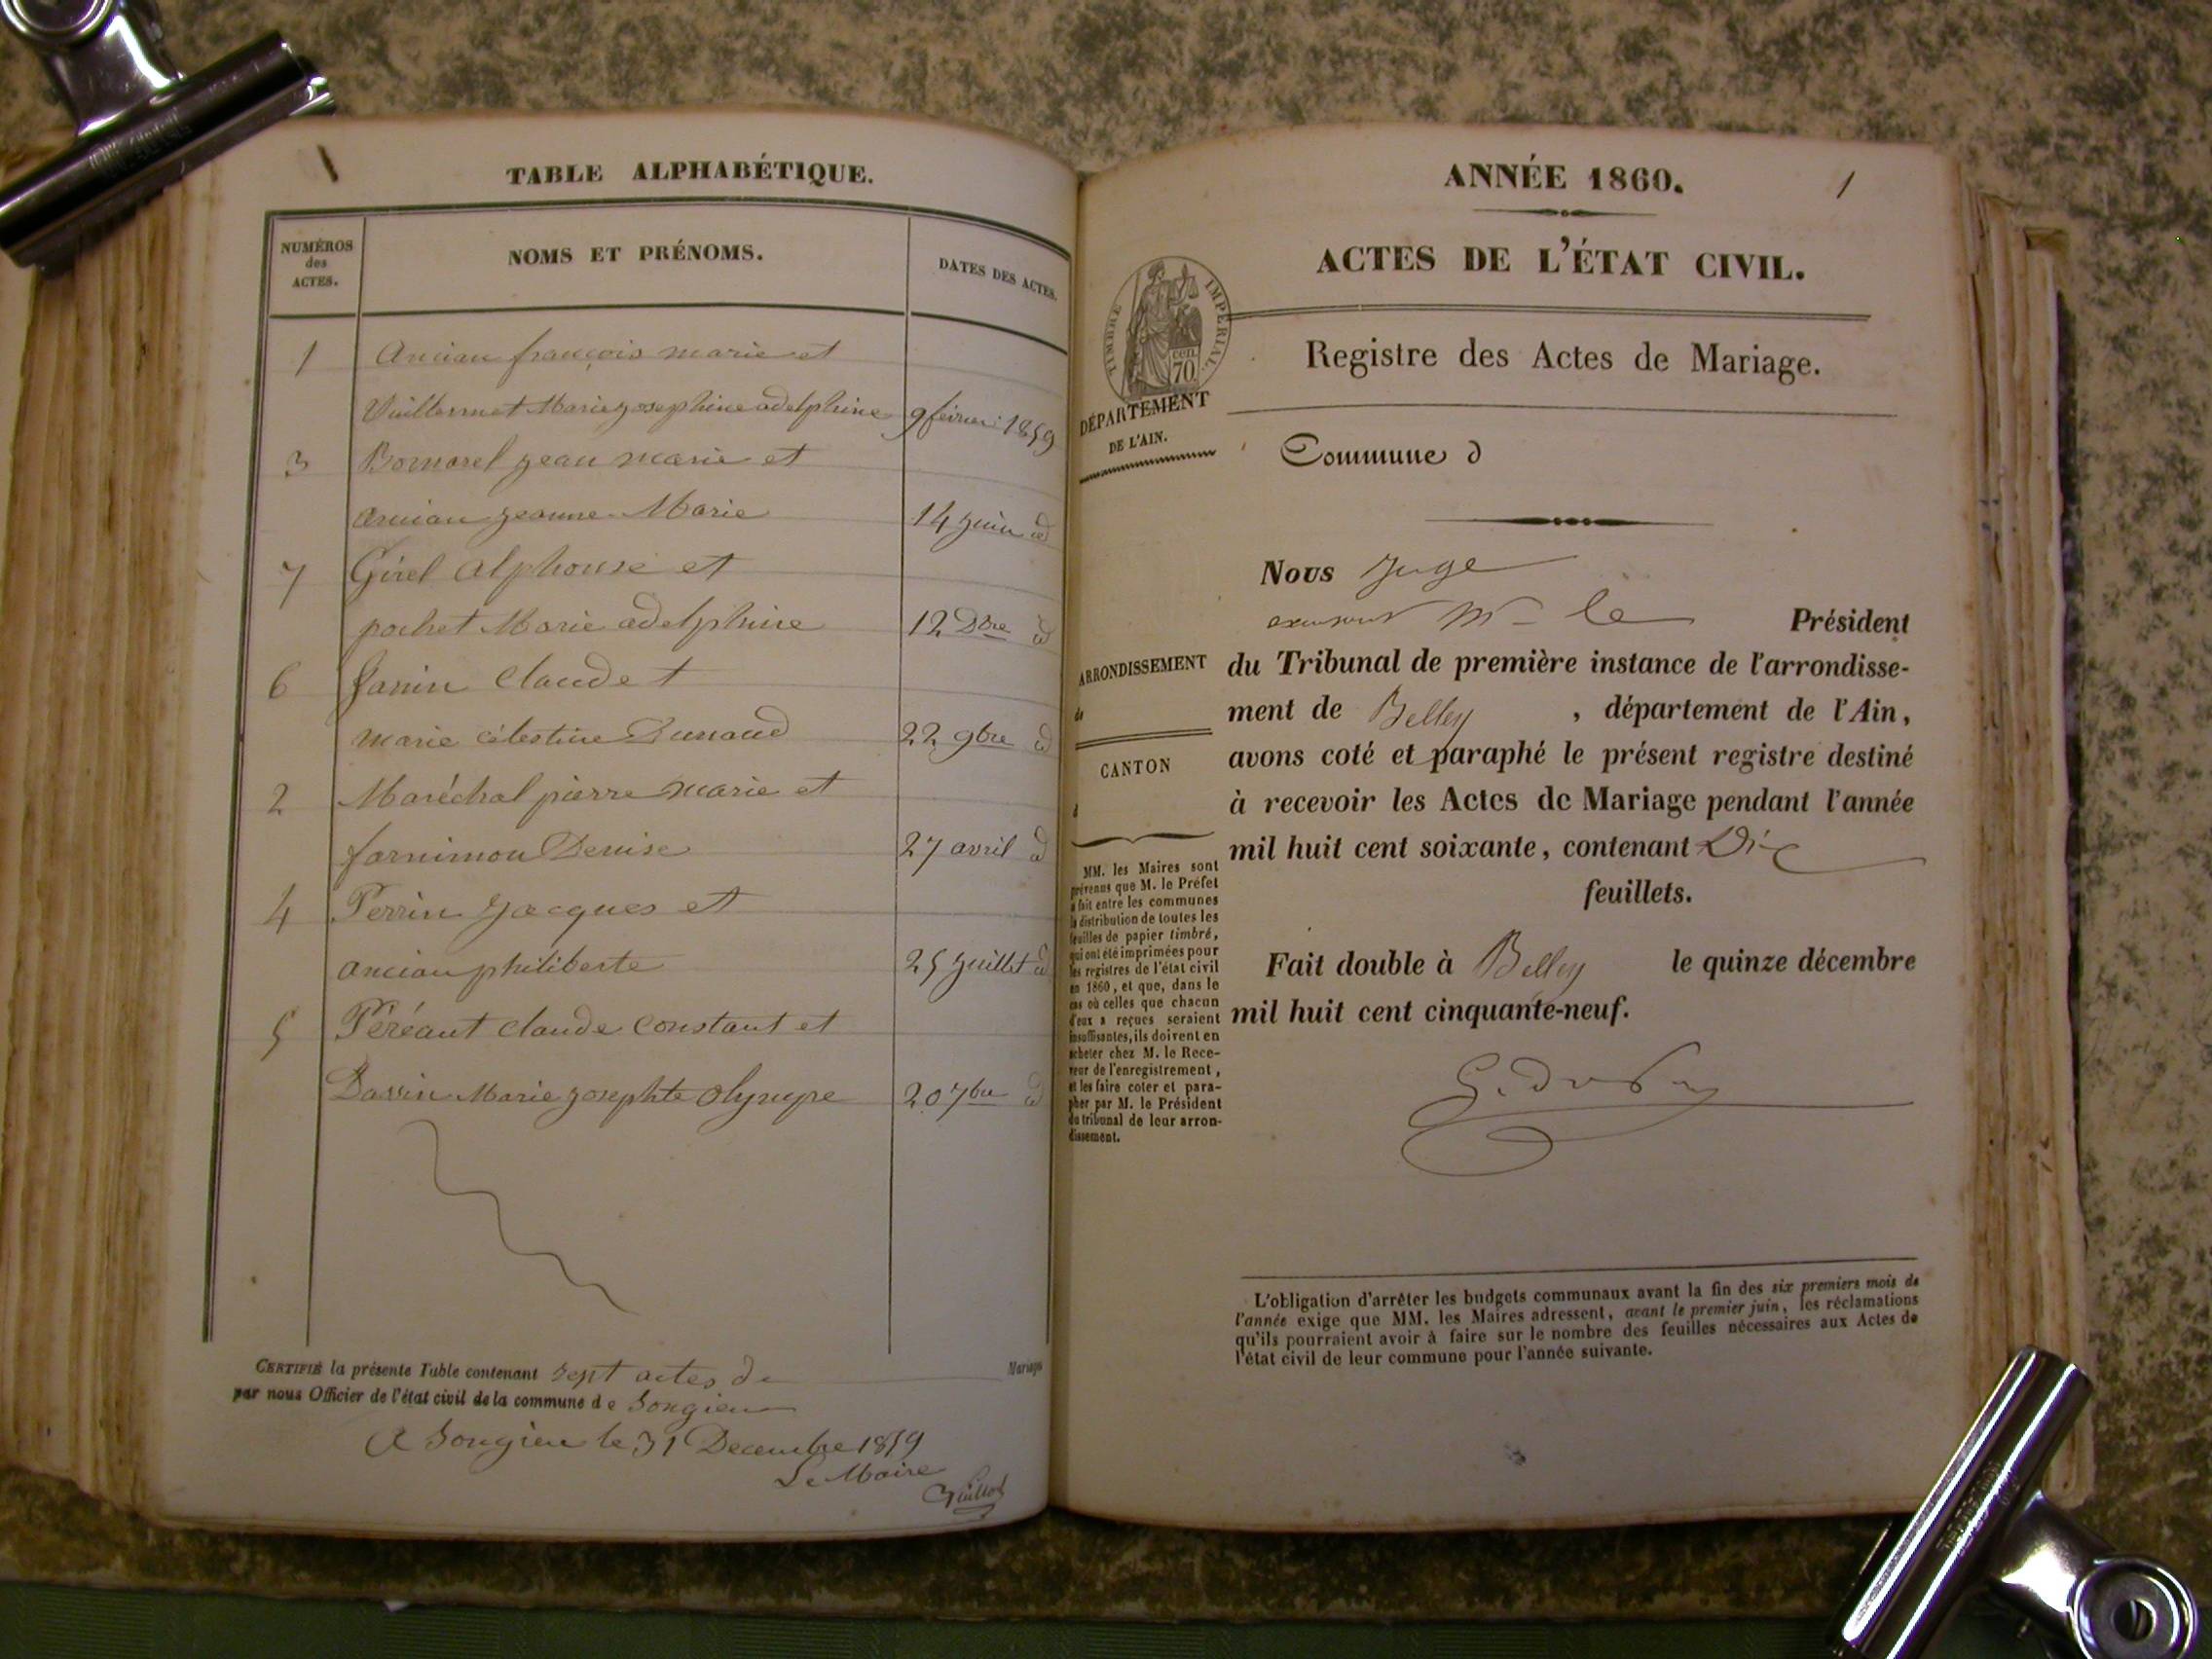 TABLE ALPHABÉTIQUE.
NUMÉROS
des
ACTES.
NOMS ET PRÉNOMS.
DATES DES ACTES.
1 Ancian françois marie et
Vuillermet Marie josephine adelphine 9 février 1859
3 Bornarel jean marie et
ancian jeanne Marie 14 juin d
7 Girel alphonse et
pochet Marie adelphine 12 Dbre d
6 Janin Claude et
marie célestine Dunand 22 9bre d
2 Maréchal pierre marie et
fornimon Denise 27 avril d
4 Perrin Jacques et
ancian philiberte 25 juillet d
5 Péréaut claude constant et
Dassin Marie josephte olympe 20 7bre d
CERTIFIÉ la présente Table contenant sept actes de Mariage
par nous Officier de l'état civil de la commune de Songieu
A Songieu le 31 Decembre 1859
Le Maire
Guillot
1
ANNÉE 1860.
ACTES DE L'ÉTAT CIVIL.
TIMBRE IMPÉRIAL
cen.
70
Registre des Actes de Mariage.
DÉPARTEMENT
DE L'AIN.
Commune d
Nous Juge
Mr le Président
ARRONDISSEMENT
de
CANTON
d
du Tribunal de première instance de l'arrondisse-
ment de Belley, département de l'Ain,
avons coté et paraphé le présent registre destiné
à recevoir les Actes de Mariage pendant l'année
mil huit cent soixante, contenant Dix
feuillets.
MM. les Maires sont
prévenus que M. le Préfet
a fait entre les communes
la distribution de toutes les
feuilles de papier timbré,
qui ont été imprimées pour
les registres de l'état civil
en 1860, et que, dans le
cas où celles que chacun
d'eux a reçues seraient
insuffisantes, ils doivent en
acheter chez M. le Rece-
veur de l'enregistrement,
et les faire coter et para-
pher par M. le Président
du tribunal de leur arron-
dissement.
Fait double à Belley le quinze décembre
mil huit cent cinquante-neuf.
L'obligation d'arrêter les budgets communaux avant la fin des six premiers mois de
l'année exige que MM. les Maires adressent, avant le premier juin, les réclamations
qu'ils pourraient avoir à faire sur le nombre des feuilles nécessaires aux Actes de
l'état civil de leur commune pour l'année suivante.